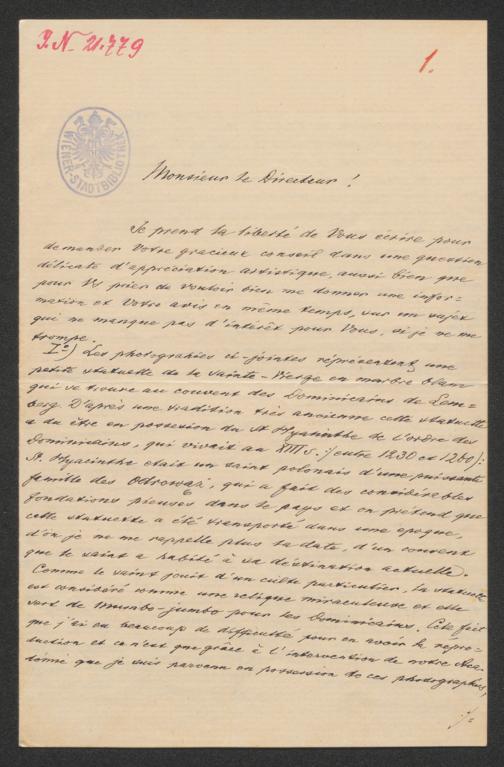 J.N. 21.779
1.
WIENER-STADTBIBLIOTHEK
Monsieur le Directeur !
Je prend la liberté de Vous écrire pour
demander Votre gracieux conseil dans une question
délicate d'appréciation artistique, aussi bien que
pour Vs prier de vouloir bien me donner une infor=
mation et Votre avis en même temps, sur un sujet
qui ne manque pas d'intérêt pour Vous, si je ne me
trompe.
I°) Les photographies ci-jointes représentent une
petite statuette de la Sainte-Vierge en marbre blanc
qui se trouve au couvent des Dominicains de Lem=
berg. D'après une tradition très ancienne cette statuette
a du être en possesion du St Hyacinthe de l'ordre des
Dominicains, qui vivait au XIII s. /: entre 1230 et 1260 :/
St. Hyacinthe était un saint polonais d'une puissante
famille des Odrowąż, qui a fait des considérables
fondations pieuses dans le pays et on prétend que
cette statuette a été transporté dans une epoque,
d'on je ne me rappelle plus la date, d'un couvent
que le saint a habité à sa déstination actuelle.
Comme le saint jouit d'un culte particulier, la statuette
est considéré comme une relique miraculeuse et elle
sert de mumbo-jumbo pour les Dominicains. Cela fait
que j'ai eu beaucoup de difficulté pour en avoir la repro=
duction et ce n'est que grâce à l'intervention de notre Aca=
démie que je suis parvenu en possession de ces photographies,